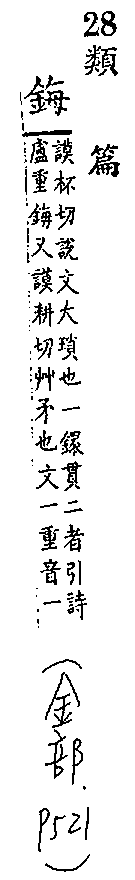 28
類
篇
鋂
謨杯切說文大瑣也一鐶貫二者引詩
盧重鋂又謨耕切艸矛也文一重音一
(金部.
P521)